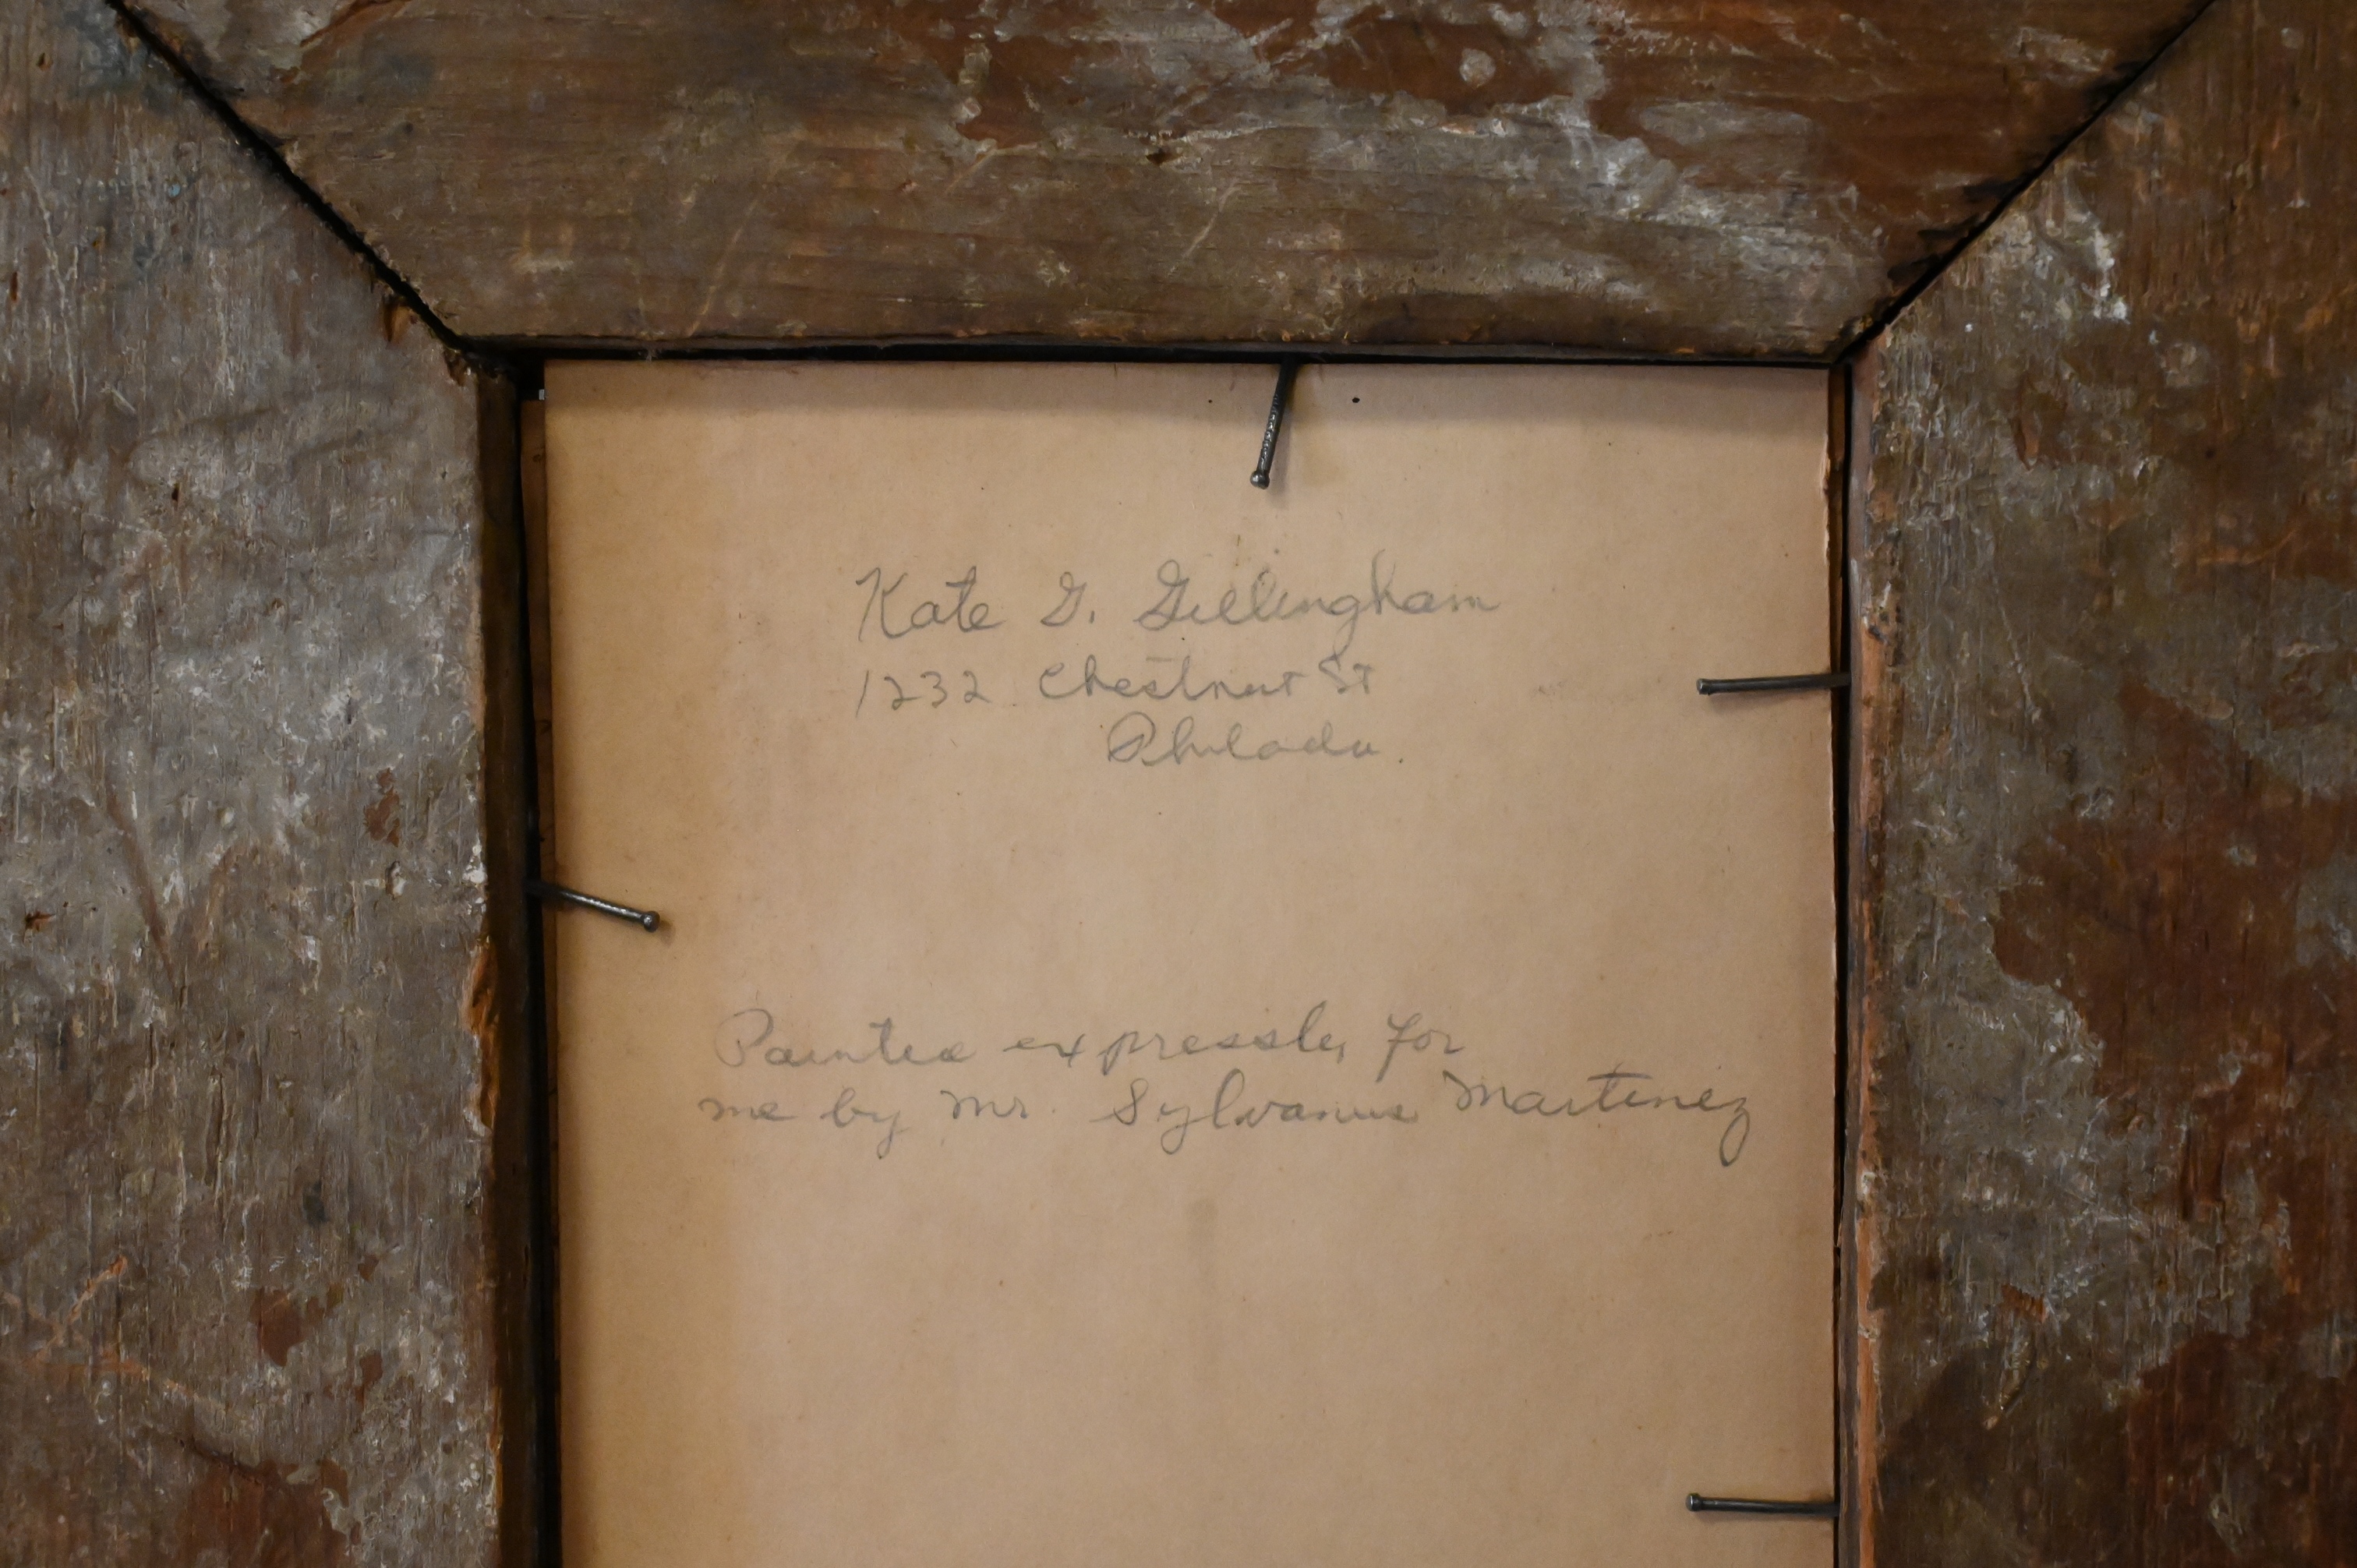 Kate G. Gillingham
1232 Chestnut St
Philada.
Painted expressly for
me by Mr. Sylvanus Martinez